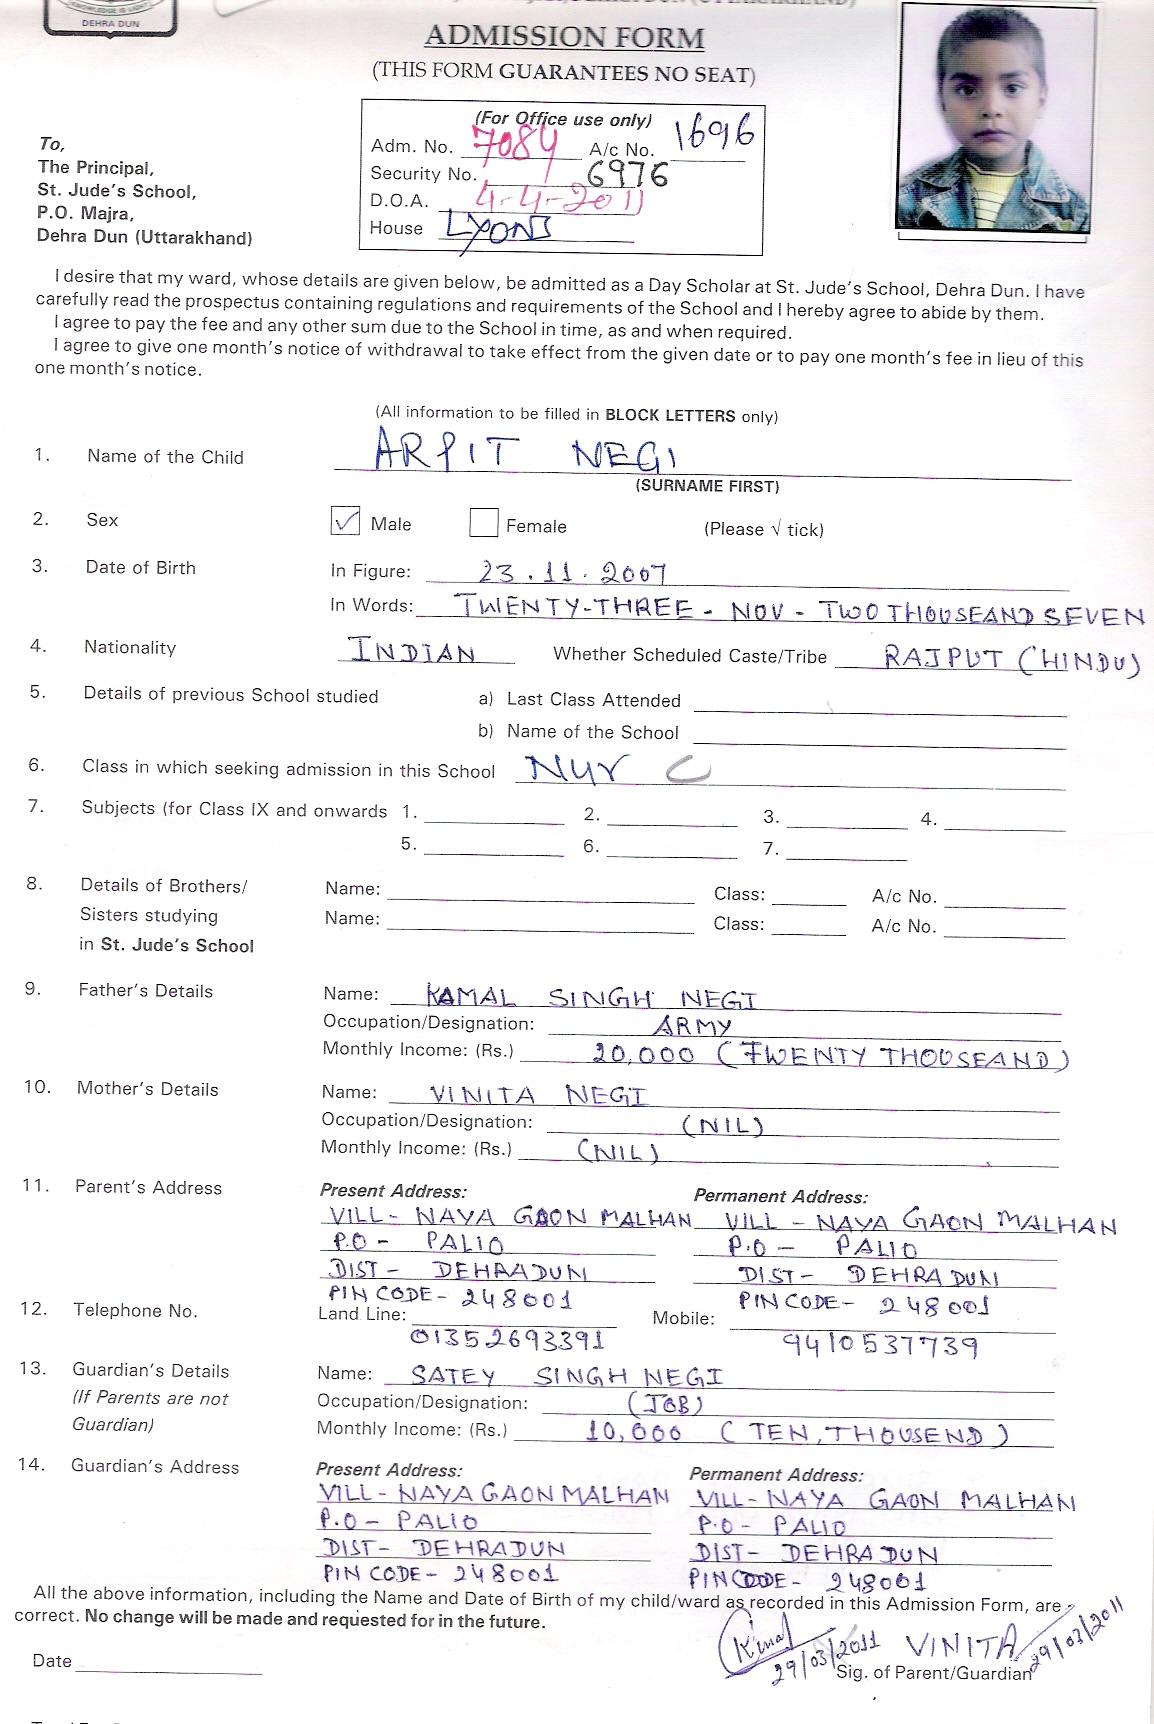 KNOWLEDGE IS LIGHT
DEHRA DUN
ADMISSION FORM
(THIS FORM GUARANTEES NO SEAT)
(For Office use only)
Adm. No. 7084 A/c No. 1696
Security No. 6976
D.O.A. 4-4-2011
House LYONS
To,
The Principal,
St. Jude's School,
P.O. Majra,
Dehra Dun (Uttarakhand)
I desire that my ward, whose details are given below, be admitted as a Day Scholar at St. Jude's School, Dehra Dun. I have
carefully read the prospectus containing regulations and requirements of the School and I hereby agree to abide by them.
I agree to pay the fee and any other sum due to the School in time, as and when required.
I agree to give one month's notice of withdrawal to take effect from the given date or to pay one month's fee in lieu of this
one month's notice.
(All information to be filled in BLOCK LETTERS only)
1. Name of the Child ARPIT NEGI
(SURNAME FIRST)
2. Sex ✓ Male Female (Please √ tick)
3. Date of Birth In Figure: 23.11.2007
In Words: TWENTY-THREE - NOV - TWO THOUSEAND SEVEN
4. Nationality INDIAN Whether Scheduled Caste/Tribe RAJPUT (HINDU)
5. Details of previous School studied a) Last Class Attended
b) Name of the School
6. Class in which seeking admission in this School NUR C
7. Subjects (for Class IX and onwards 1. 2. 3. 4.
5. 6. 7.
8. Details of Brothers/ Name: Class: A/c No.
Sisters studying Name: Class: A/c No.
in St. Jude's School
9. Father's Details Name: KAMAL SINGH NEGI
Occupation/Designation: ARMY
Monthly Income: (Rs.) 20,000 (TWENTY THOUSEAND)
10. Mother's Details Name: VINITA NEGI
Occupation/Designation: (NIL)
Monthly Income: (Rs.) (NIL)
11. Parent's Address Present Address: Permanent Address:
VILL- NAYA GAON MALHAN VILL - NAYA GAON MALHAN
P.O - PALIO P.O - PALIO
DIST- DEHRADUN DIST- DEHRADUN
PIN CODE- 248001 PIN CODE- 248001
12. Telephone No. Land Line: Mobile:
01352693391 9410537739
13. Guardian's Details Name: SATEY SINGH NEGI
(If Parents are not Occupation/Designation: (JOB)
Guardian) Monthly Income: (Rs.) 10,000 (TEN, THOUSEND)
14. Guardian's Address Present Address: Permanent Address:
VILL- NAYA GAON MALHAN VILL- NAYA GAON MALHAN
P.O - PALIO P.O - PALIO
DIST- DEHRADUN DIST- DEHRADUN
PIN CODE- 248001 PIN CODE- 248001
All the above information, including the Name and Date of Birth of my child/ward as recorded in this Admission Form, are
correct. No change will be made and requested for in the future.
29/03/2011 VINITA 29/03/2011
Date Sig. of Parent/Guardian